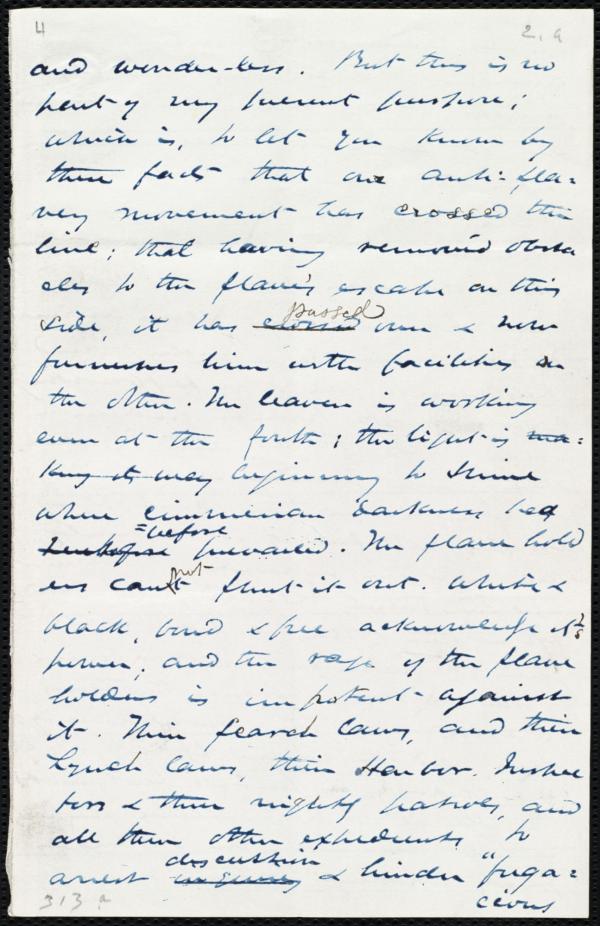 4 2. a
and wonder-less. But this is no
part of my present purpose;
which is, to let you know by
these facts that our anti-sla=
very movement has crossed the
line; that having removed obsta
cles to the slave's escape on this
side, it has crossed passed over & now
furnishes him with facilities on
the other. The leaven is working
even at the south; the light is ma=
king its way beginning to shine
where cimmerian darkness had
heretofore =before prevailed. The slave hold
ers cannot shut it out. White &
black, bond & free acknowledge its
power, and the rage of the slave
holders is impotent against
it. Their search laws, and their
Lynch laws, their Harbor-Inspec
tors & their nightly patrols, and
all their other expedients to
arrest inquiry discussion & hinder "fuga=
cious
313 a